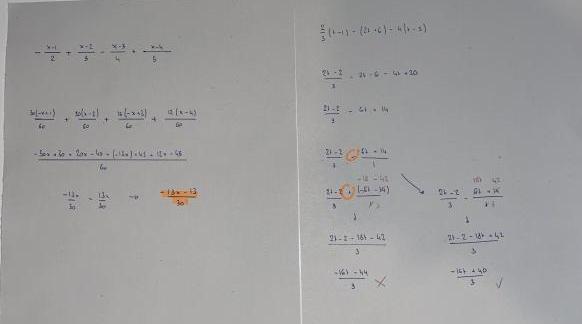 - x-1/2 + x-2/3 - x-3/4 + x-4/5
30(-x+1)/60 + 20(x-2)/60 + 15(-x+3)/60 + 12(x-4)/60
-30x + 30 + 20x - 40 + (-15x) + 45 + 12x - 48/60
-13x/30 - 13x/30 → -13x - 13/30
2/3 (t-1) - (2t+6) - 4(t-5)
2t-2/3 - 2t - 6 - 4t + 20
2t-2/3 - 6t + 14
2t-2/3 - 6t + 14/1
-18 - 42
2t-2/3 + (-6t - 14)/
18t 42
2t-2/3 - 6t + 14/
2t - 2 - 18t - 42/3
2t - 2 - 18t + 42/3
-16t - 44/3 ×
-16t + 40/3 ✓